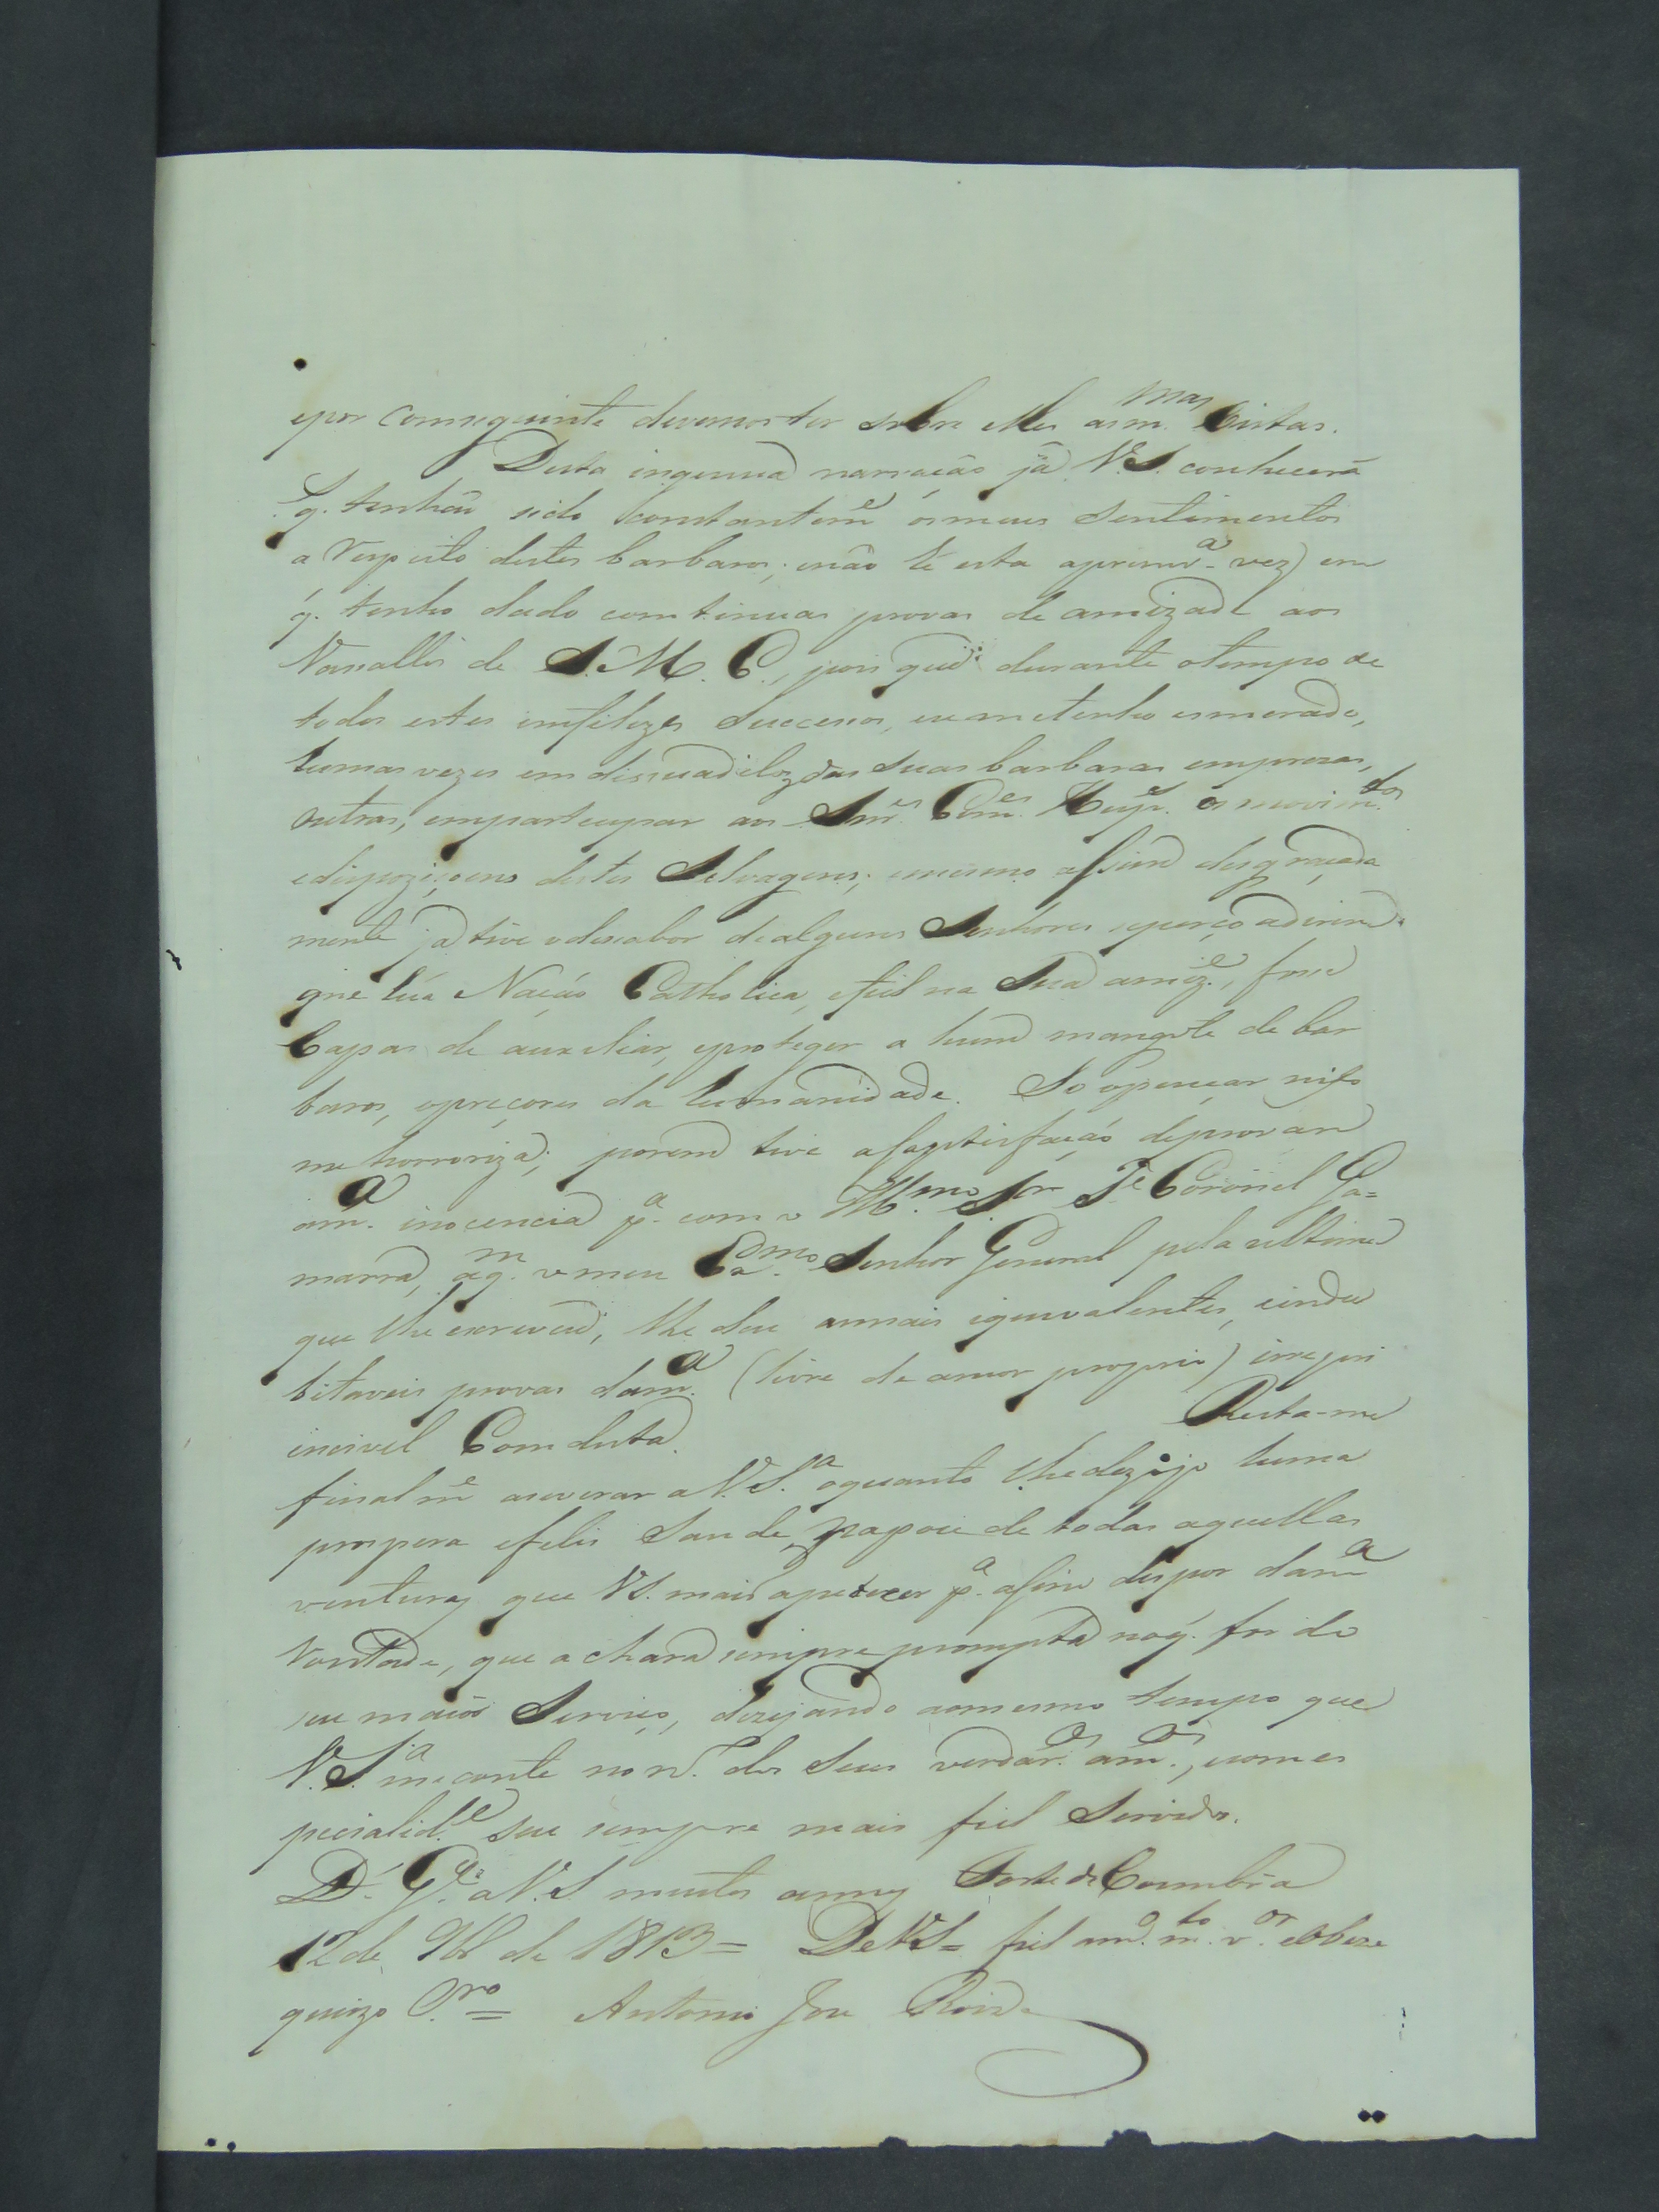 epor conseguinte devemos ter sobre elles as m.mas vistas.
Desta ingenua narração já V.S. conhecerá
q. tenhaõ sido constantem.e os meus sentimentos
a respeito destes barbaros; enão hé esta aprimr.a vez) em
q. tenho dado continuas provas de amizade aos
Vassallos de S. M. C., pois que durante otempo de
todos estes infelizes successos, eu me tenho esmerado,
humas vezes em dissuadilos das suas barbaras emprezas,
outras, emparticipar aos Snr.es Com.es Hesp.es os movim.tos
edispoziçoens destes Selvagens; emesmo assim desgraçada
mente já tive odissabor dealguns Senhores
que húa Nação Catholica, efiel na Sua amiz.e, fosse
Capas de auxiliar, eproteger a hum mangote de bar
baros, opreçores da humanidade. Só opençar nisso
me horroriza; porem tive asaptisfaçaõ deprovar
am.a inocencia p.a com o Ill.mo Snr T.e Coronel Ga=
marra, aq.m o meu Senhor General pela ultima
que lhe escreveu, lhe deu asmais equivalentes, eindu
bitaveis provas dam.a (livre de amor proprio) irrepri
encivel Conduta. Resta-me
finalm.e aseverar a V.S.a oquanto lhe dezejo huma
prospera efelis Saude, de todas aquellas
venturas que V.S. mais apetecer p.a asim dispor dam.a
Vontade, que achará sempre prompta noq. for do
seu maior Serviço, dezejando aomesmo tempo que
V.S.a meconte no n.º dos Seus verdadr.os am.os, ecom es
pecialid.e seu sempre mais fiel Servidor.
D.s G.e a V.S. muitos annos Forte de Coimbra
12 de de 1813 = DeV.S.= fiel am.o m.to v.or eobze
quiozo C.ro = Antonio Joze Roiz